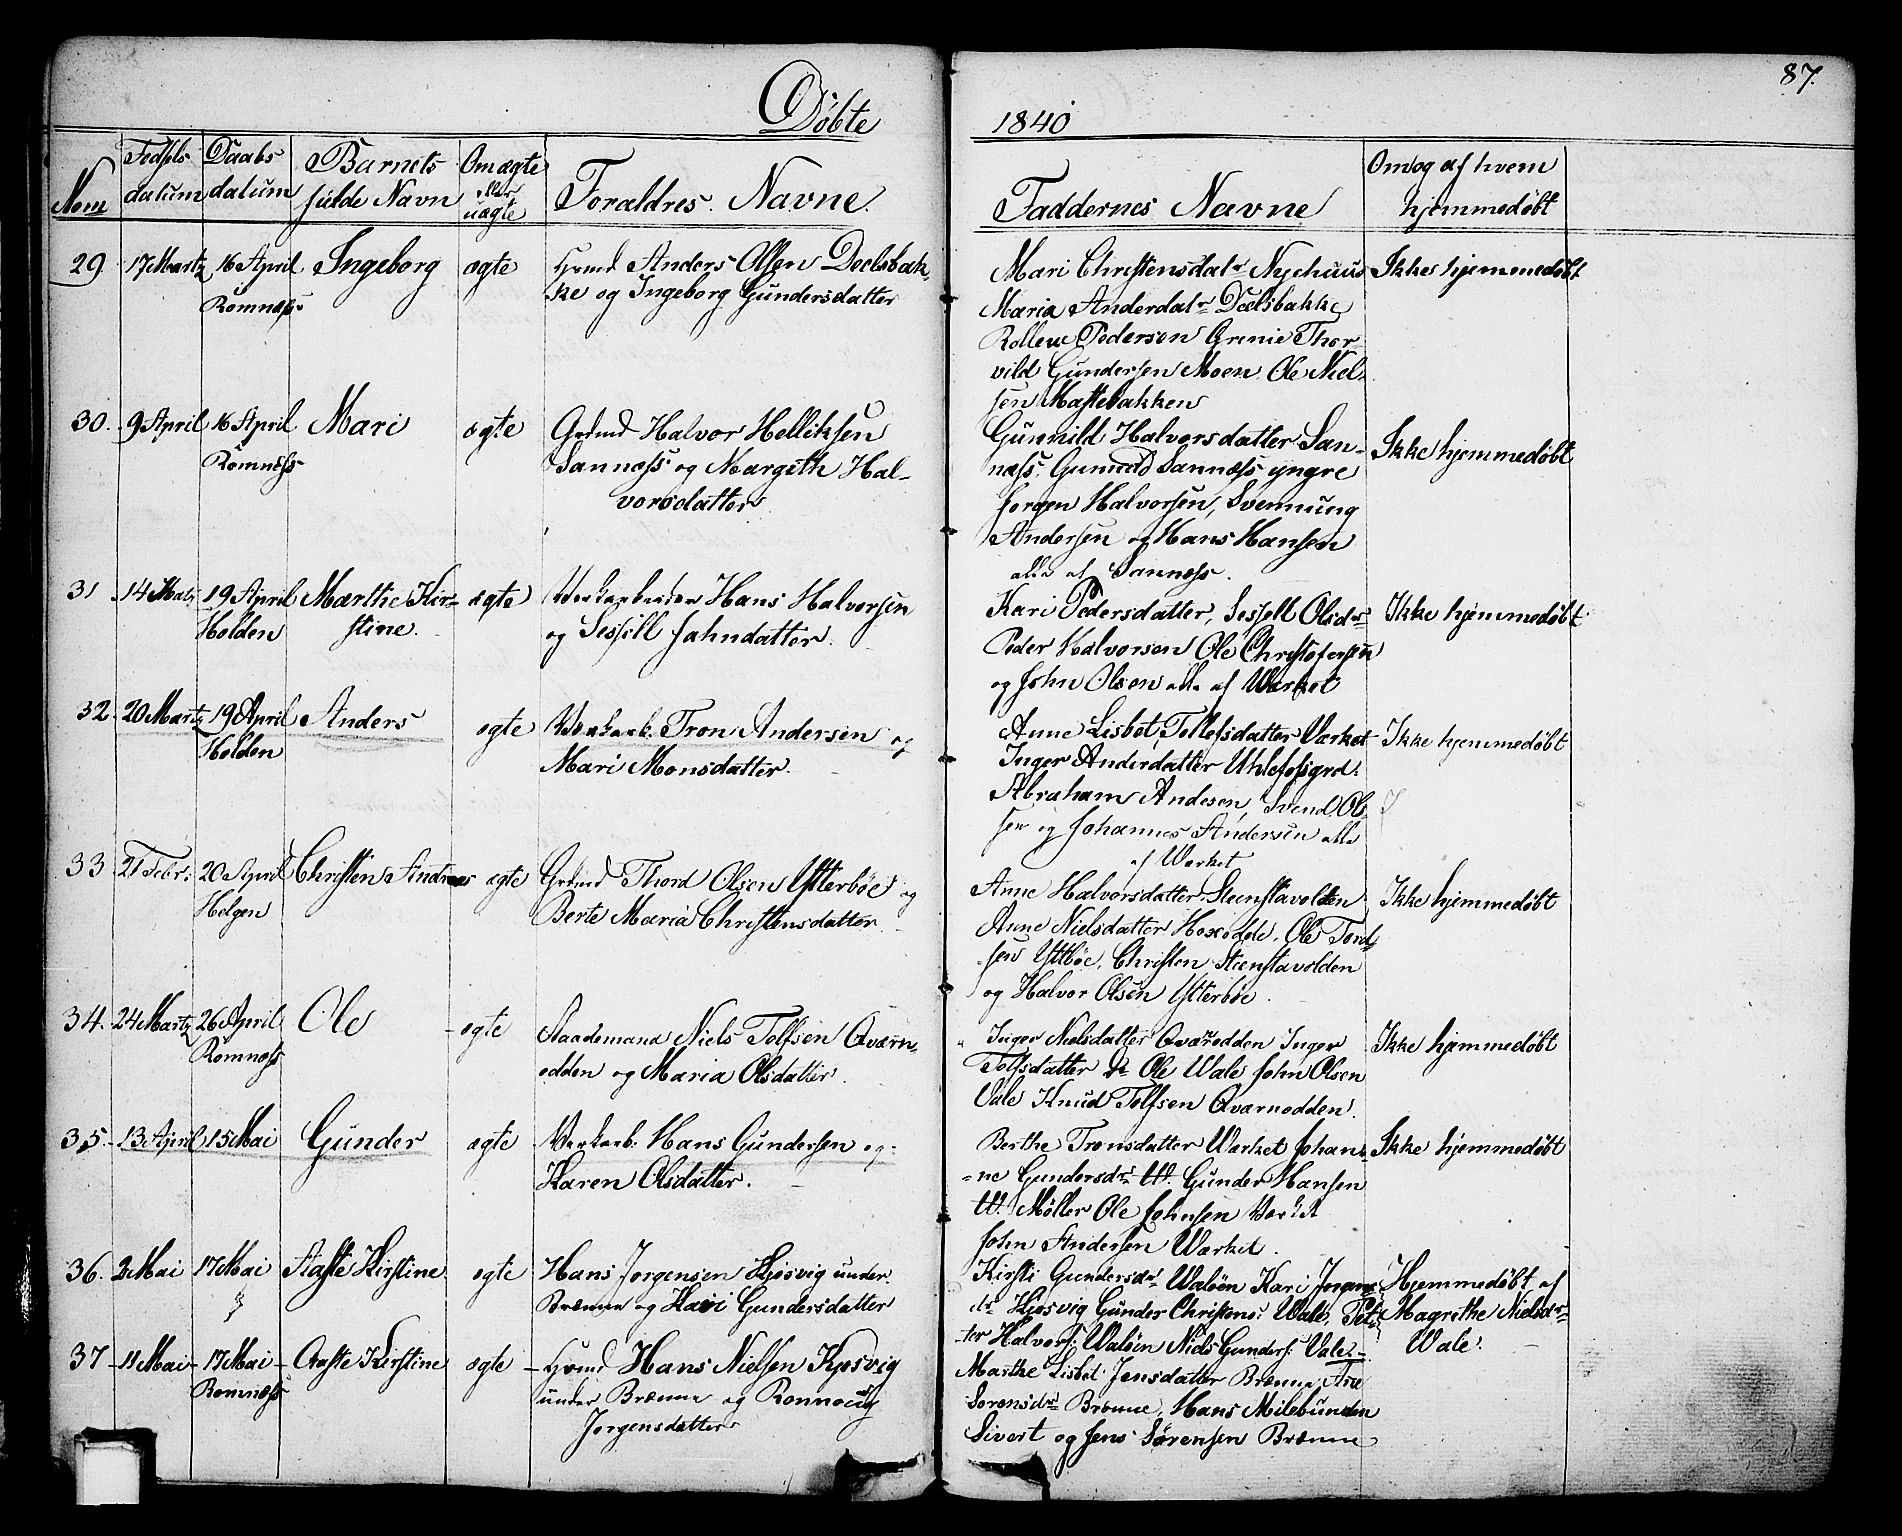 Döbte
1840
87.
Nom
Fødsels datum
Daabs datum
Barnets fulde Navn
Om ægte eller uægte
Forældres Navne.
Faddernes Navne
Om og af hvem hjemmedøbt
29 17 Martz 16 April Ingeborg ægte
Romnæss
Anders Olsen Deelsbak-
ke og Ingeborg Gundersdatter
Mari Christensdatr Nyehuus
Maria Anderdatr Deelsbakke
Pedersen Thor-
vild Gundersen Moen, Ole Niel-
sen Mastebakken
Ikke hjemmedøbt
30. 9 April 16 April Mari ægte
Romnæss
Halvor Helliksen
Sannæss og Margith Hal-
vorsdatter
Gunnild Halvorsdatter San-
næss, Gunnild Sannæss yngre
Jorgen Halvorsen, Svennung
Andersen og Hans Hansen
alle af Sannæss.
Ikke hjemmedøbt
31 14 Martz 19 April Marthe Kir- ægte
Holden stine.
Verkarbeider Hans Halvorsen
og Sessill Jahndatter.
Kari Pedersdatter, Sessell Olsdr
Peder Halvorsen Ole Christofersen
og John Olsen alle af Værket
Ikke hjemmedøbt
32. 20 Martz 19 April Anders ægte
Holden
Verkarb. Tron Andersen og
Mari Monsdatter.
Anne Lisbet Tollefsdatter Værket
Inger Anderdatter Uhlefosgrd.
Abraham Andesen, Svend Ol-
sen og Johannes Andersen alle
af Værket
Ikke hjemmedøbt
33 21 Febr: 20 April Christen Andreas ægte
Helgen
Thord Olsen Ytterböe og
Berte Maria Christensdatter
Anne Halvorsdatter Steenstavolden
Anne Nielsdatter Hoxodde, Ole Tord-
sen Yttböe, Christen Stenstavolden
og Halvor Olsen Ytterböe.
Ikke hjemmedøbt
34. 24 Martz 26 April Ole ægte
Romnæss
Gaardmand Niels Tolfsen Qværn-
odden og Maria Olsdatter.
Inger Nielsdatter Qværnodden Inger
Tolfsdatter do Ole Wale John Olsen
Vale Knud Tolfsen Qvarnodden.
Ikke hjemmedøbt
35. 13 April 15 Mai Gunder ægte
Verkarb. Hans Gundersen og
Karen Olsdatter.
Berthe Tronsdatter Værket Johan-
ne Gundersdr W. Gunder Hansen
W. Møller Ole Johnsen Værket
John Andersen Værket.
Ikke hjemmedøbt
36. 2 Mai 17 Mai Aaste Kirstine ægte
Hans Jorgensen Kjøsvig under
Brænne og Kari Gundersdatter
Kirsti Gundersdr Waløen Kari Jorgens-
dr Kjøsvig Gunder Christens: Wale, Pet-
ter Halvors: Waløen Niels Gunders: Vale.
Hjemmedøbt af
Magrethe Nielsdr
Wale.
37 11 Mai 17 Mai Aaste Kirstine ægte
Romnæss
Hans Nielsen Kjøsvig
under Brænne og Ronnoug
Jorgensdatter
Marthe Lisbet Jensdatter Brænne, Ane
Sorensdr Brænne, Hans Milebunden
Sivert og Jens Sørensen Brænne